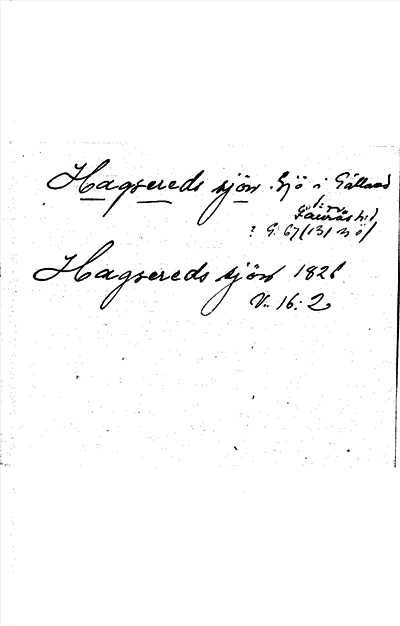 Hagsereds sjön. Sjö i Gällared
Faurås hd.
? G: 67 (131 n ö)
Hagsereds sjön 1826
V. 16: 2